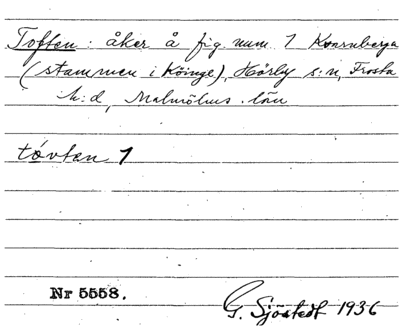 Toften: åker å fig. num. 1 Kvarnberga
(stammen i Köinge), Hörby s:n, Frosta
h:d, Malmöhus län
tóvten 1
Nr 5558.
G. Sjöstedt 1936